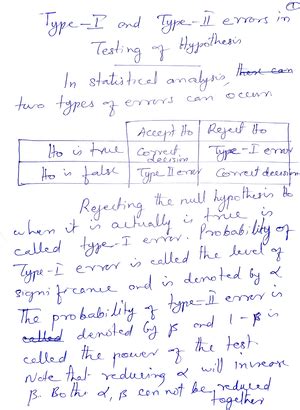 ①
Type-I and Type-II errors in
Testing of Hypothesis
In statistical analysis, there can
two types of errors can occur
Accept Ho Reject Ho
Ho is true Correct decision Type-I error
Ho is false Type II error Correct decision
Rejecting the null hypothesis Ho
when it is actually is true is
called type-I error. Probability of
Type-I error is called the level of
significance and is denoted by α
The probability of type-II error is
called denoted by β and 1-β is
called the power of the test.
Note that reducing α will increase
β. Both α, β can not be reduced
together